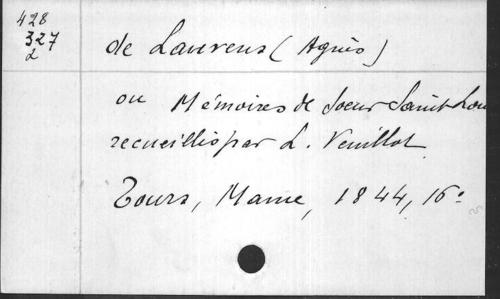 428
327
2
de Laurens (Agnès)
ou Mémoires de Soeur Saint-Lou
recueillis par L. Veuillot
Tours, Mame, 1844, 16°